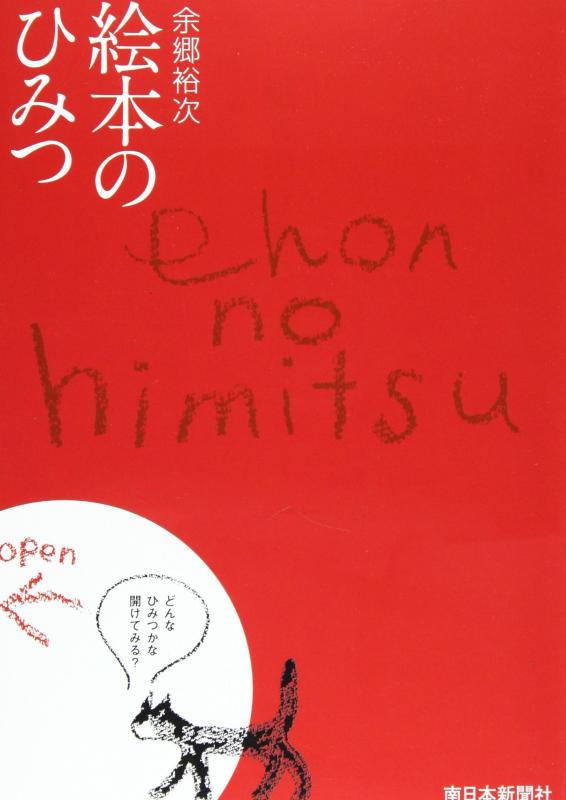 余郷裕次
絵本の
ひみつ
ehon
no
himitsu
open
どんな
ひみつかな
開けてみる?
南日本新聞社